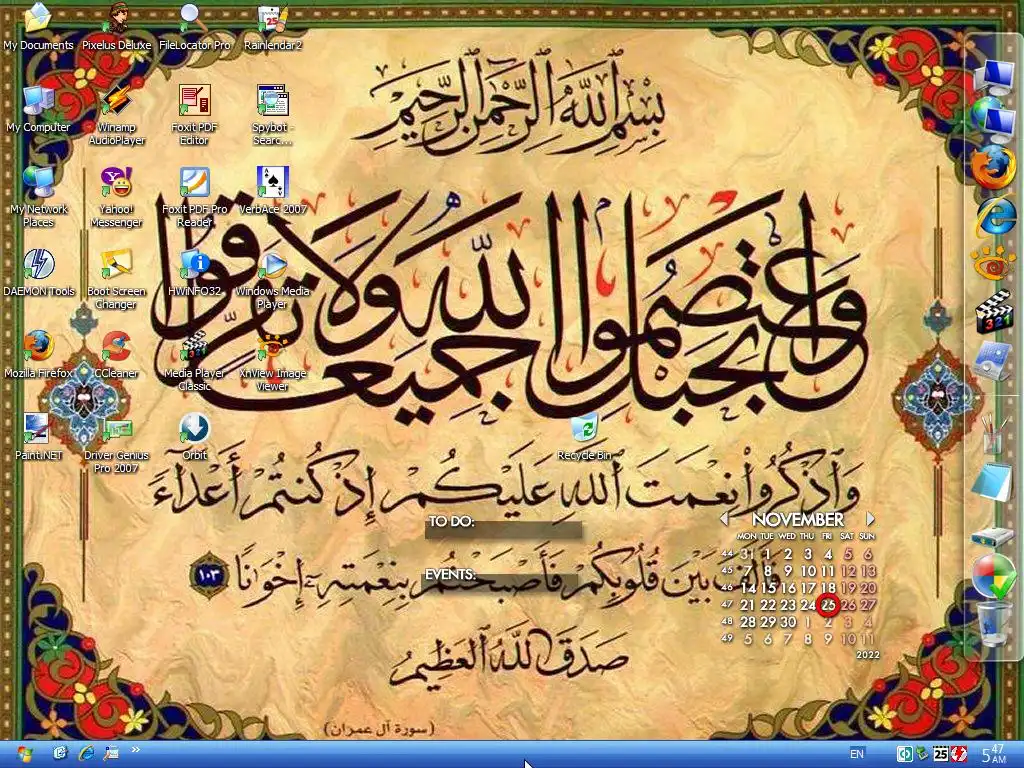 My Documents
Pixelus Deluxe
FileLocator Pro
Rainlendar2
My Computer
Winamp
AudioPlayer
Foxit PDF
Editor
Spybot -
Searc...
My Network
Places
Yahoo!
Messenger
Foxit PDF Pro
Reader
VerbAce 2007
DAEMON Tools
Boot Screen
Changer
HWiNFO32
Windows Media
Player
Mozilla Firefox
CCleaner
Media Player
Classic
XnView Image
Viewer
Paint.NET
Driver Genius
Pro 2007
Orbit
Recycle Bin
بِسْمِ اللهِ الرَّحْمنِ الرَّحِيمِ
واعتصموا بحبل الله جميعا ولا تفرقوا
وَاذْكُرُوا نِعْمَتَ اللهِ عَلَيْكُمْ إِذْ كُنتُمْ أَعْدَاءً
فَأَلَّفَ بَيْنَ قُلُوبِكُمْ فَأَصْبَحْتُم بِنِعْمَتِهِ إِخْوَانًا ١٠٣
صَدَقَ اللهُ العَظِيمُ
(سورة آل عمران)
TO DO:
EVENTS:
NOVEMBER
MON TUE WED THU FRI SAT SUN
44 31 1 2 3 4 5 6
45 7 8 9 10 11 12 13
46 14 15 16 17 18 19 20
47 21 22 23 24 25 26 27
48 28 29 30 1 2 3 4
49 5 6 7 8 9 10 11
2022
321
EN
25
5 47 AM